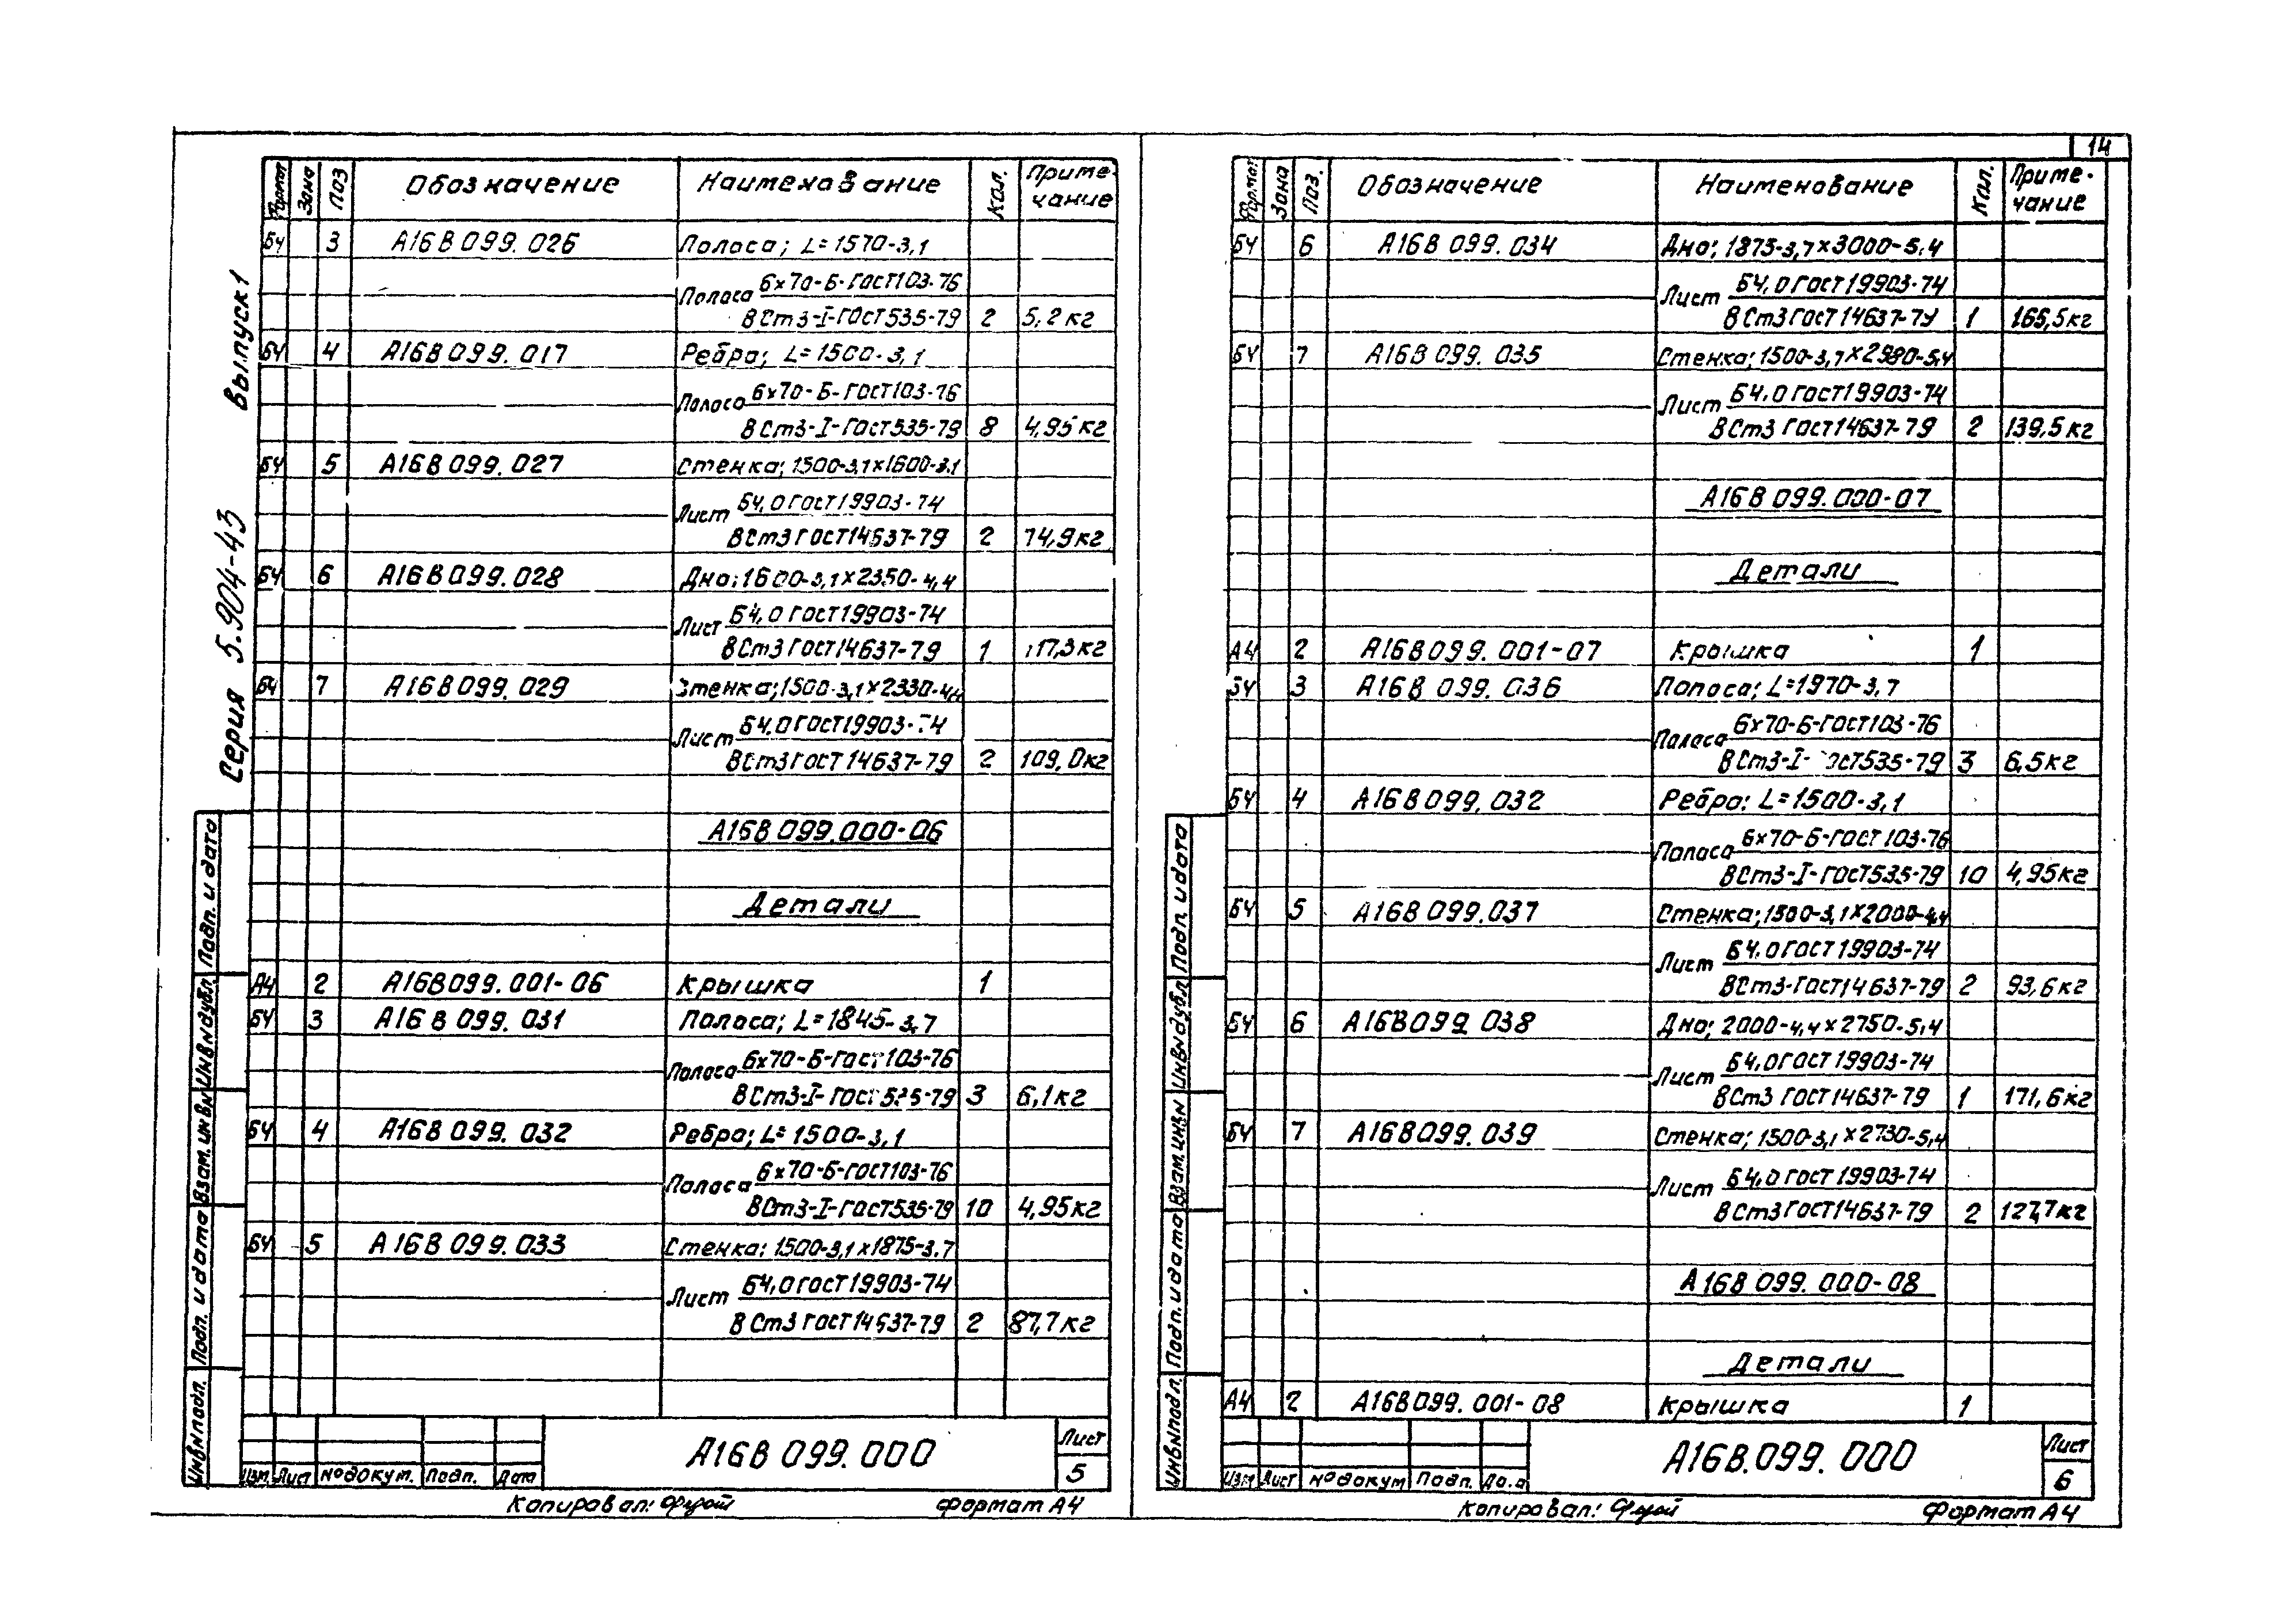 14
Серия 5.904-43 выпуск 1
Формат Зона Поз Обозначение Наименование Кол. Приме-чание
БЧ 3 А16В099.026 Полоса; L=1570-3,1
Полоса 6х70-Б-ГОСТ103-76
ВСт3-I-ГОСТ535-79 2 5,2кг
БЧ 4 А16В099.017 Ребро; L=1500-3,1
Полоса 6х70-Б-ГОСТ103-76
ВСт3-I-ГОСТ535-79 8 4,95кг
БЧ 5 А16В099.027 Стенка; 1500-3,1х1600-3,1
Лист Б4,0ГОСТ19903-74
ВСт3ГОСТ14637-79 2 74,9кг
БЧ 6 А16В099.028 Дно; 1600-3,1х2350-4,4
Лист Б4,0ГОСТ19903-74
ВСт3ГОСТ14637-79 1 117,3кг
БЧ 7 А16В099.029 Стенка; 1500-3,1х2330-4,4
Лист Б4,0ГОСТ19903-74
ВСт3ГОСТ14637-79 2 109,0кг
А16В099.000-06
Детали
А4 2 А16В099.001-06 Крышка 1
БЧ 3 А16В099.031 Полоса; L=1845-3,7
Полоса 6х70-Б-ГОСТ103-76
ВСт3-I-ГОСТ535-79 3 6,1кг
БЧ 4 А16В099.032 Ребро; L=1500-3,1
Полоса 6х70-Б-ГОСТ103-76
ВСт3-I-ГОСТ535-79 10 4,95кг
БЧ 5 А16В099.033 Стенка; 1500-3,1х1875-3,7
Лист Б4,0ГОСТ19903-74
ВСт3ГОСТ14637-79 2 87,7кг
Инв№подл. Подп. и дата Взам.инв№ Инв№дубл. Подп. и дата
Изм. Лист №докум. Подп. Дата
А16В099.000
Лист
5
Копировал: Формат А4
Формат Зона Поз. Обозначение Наименование Кол. Приме-чание
БЧ 6 А16В099.034 Дно; 1875-3,7х3000-5,4
Лист Б4,0ГОСТ19903-74
ВСт3ГОСТ14637-79 1 165,5кг
БЧ 7 А16В099.035 Стенка; 1500-3,7х2980-5,4
Лист Б4,0ГОСТ19903-74
ВСт3ГОСТ14637-79 2 139,5кг
А16В099.000-07
Детали
А4 2 А16В099.001-07 Крышка 1
БЧ 3 А16В099.036 Полоса; L=1970-3,7
Полоса 6х70-Б-ГОСТ103-76
ВСт3-I-ГОСТ535-79 3 6,5кг
БЧ 4 А16В099.032 Ребро: L=1500-3,1
Полоса 6х70-Б-ГОСТ103-76
ВСт3-I-ГОСТ535-79 10 4,95кг
БЧ 5 А16В099.037 Стенка; 1500-3,1х2000-4,4
Лист Б4,0ГОСТ19903-74
ВСт3-ГОСТ14637-79 2 93,6кг
БЧ 6 А16В099.038 Дно; 2000-4,4х2750-5,4
Лист Б4,0ГОСТ19903-74
ВСт3ГОСТ14637-79 1 171,6кг
БЧ 7 А16В099.039 Стенка; 1500-3,1х2730-5,4
Лист Б4,0ГОСТ19903-74
ВСт3ГОСТ14637-79 2 127,7кг
А16В099.000-08
Детали
А4 2 А16В099.001-08 Крышка 1
Инв№подл. Подп. и дата Взам.инв№ Инв№дубл Подп. и дата
Изм Лист №докум Подп.
А16В.099.000
Лист
6
Копировал: Формат А4